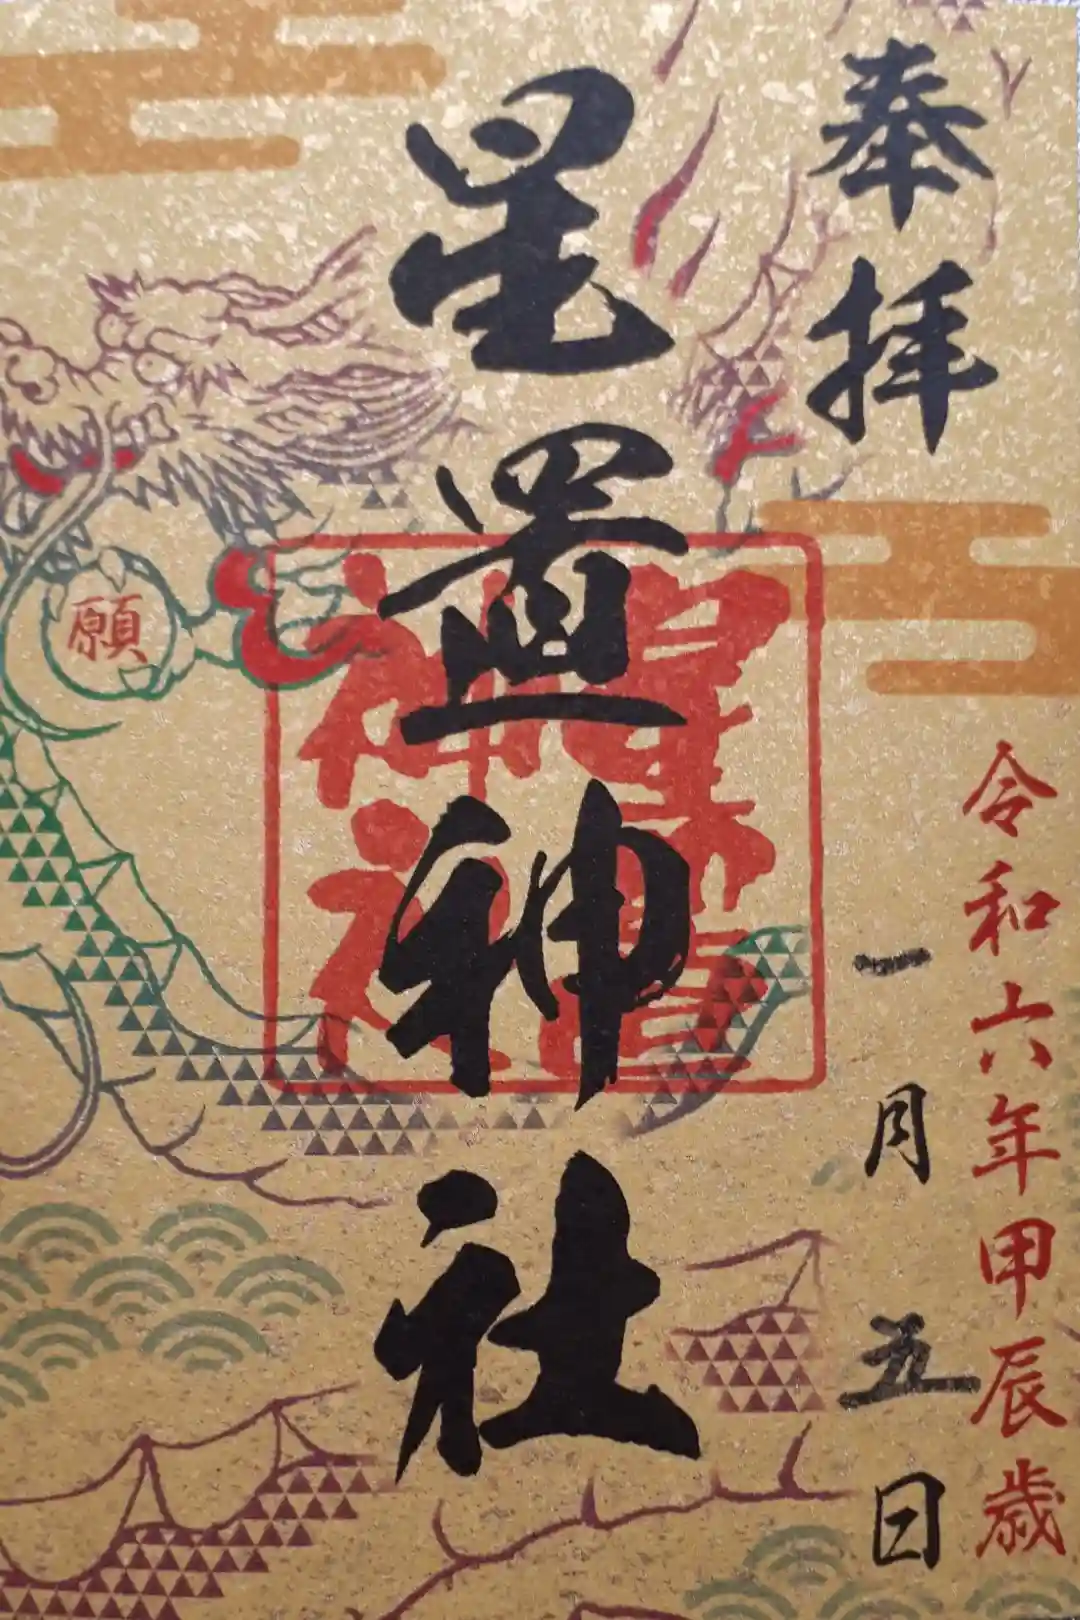 奉拝
令和六年甲辰歳
一月五日
星置神社
星置
神社
願